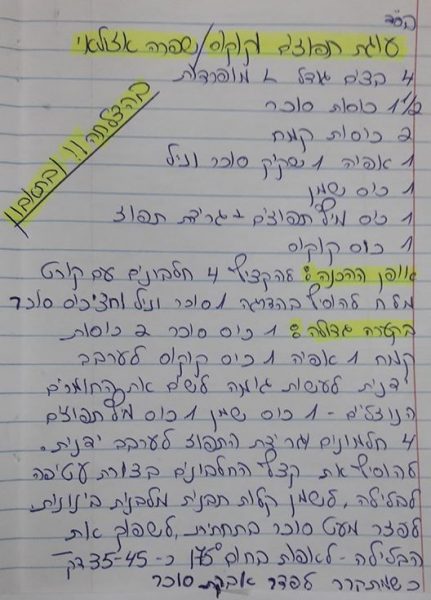 בס"ד
עוגת תפוזים וקוקוס/שפרה אזולאי
4 בצים גודל L מופרדות
1 1/2 כוסות סוכר
2 כוסות קמח
1 אפיה 1 שקיק סוכר וניל
1 כוס שמן
1 כוס מיץ תפוזים + גרידת תפוז
1 כוס קוקוס
בהצלחה!! ובתאבון!!
אופן ההכנה: להקציף 4 חלבונים עם קורט
מלח להוסיף בהדרגה 1 סוכר וניל וחצי כוס סוכר
בקערה גדולה: 1 כוס סוכר 2 כוסות
קמח 1 אפיה 1 כוס קוקוס לערבב
ידנית לעשות גומה לשים את החומרים
הנוזלים - 1 כוס שמן 1 כוס מיץ תפוזים
4 חלמונים וגרידת התפוז לערבב ידנית.
להוסיף את קצף החלבונים בצורת עטיפה
לבלילה, לשמן קלות תבנית מלבנית בינונית
לפזר מעט סוכר בתחתית, לשפוך את
הבלילה - לאפות בחום 170° כ-35-45 דק'
כשמתקרר לפדר אבקת סוכר